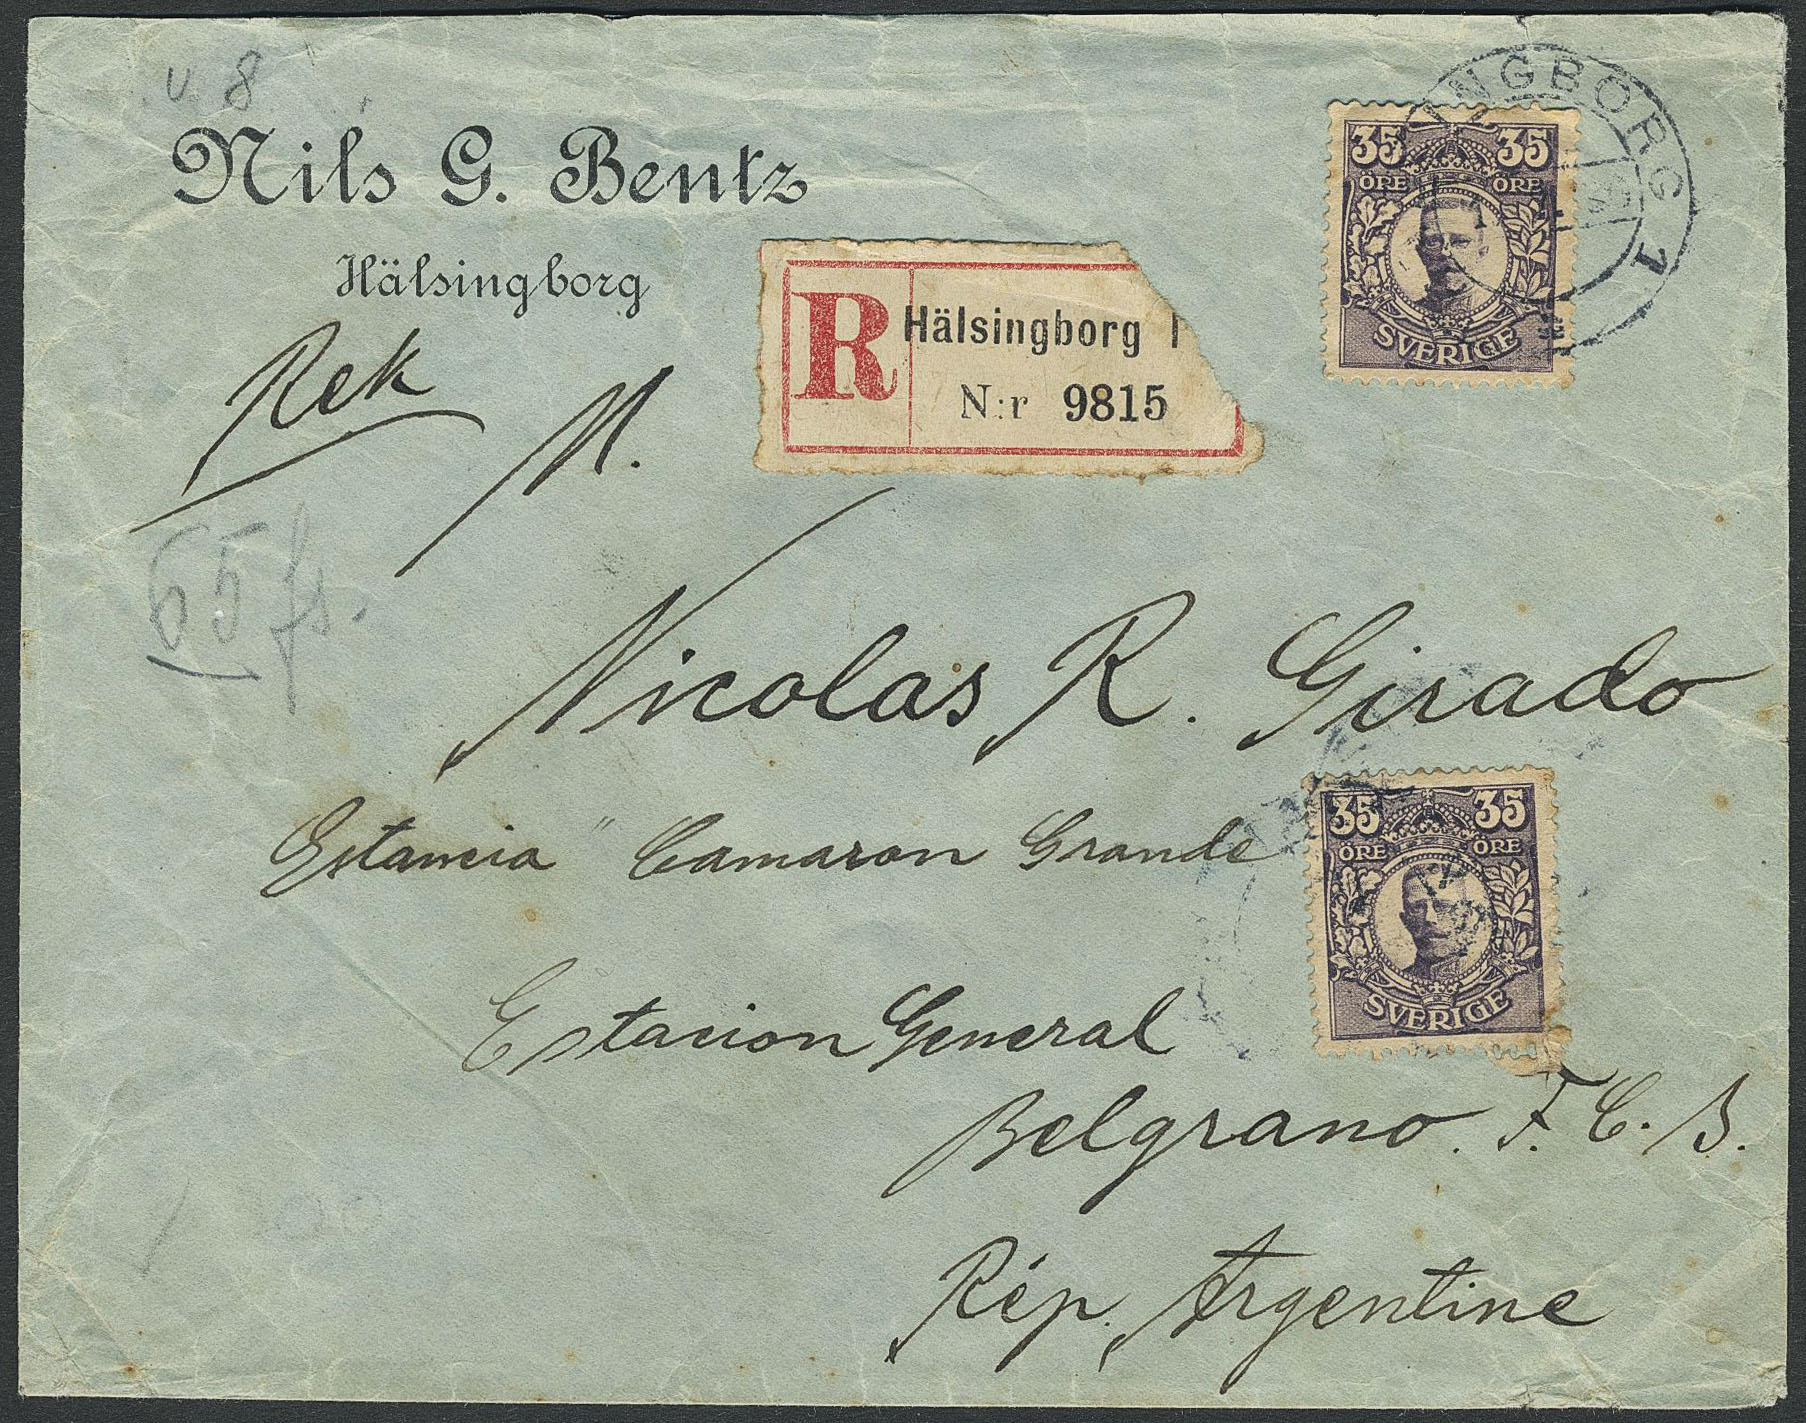 v. 8
Nils G. Bentz
Hälsingborg
Rek
M.
65 fs.
R Hälsingborg 1
N:r 9815
35 35
ÖRE ÖRE
SVERIGE
INGBORG 1
Nicolas R. Girado
Estancia "Camaron Grande
Estacion General
Belgrano. F. C. S.
Rép. Argentine
35 35
ÖRE ÖRE
SVERIGE